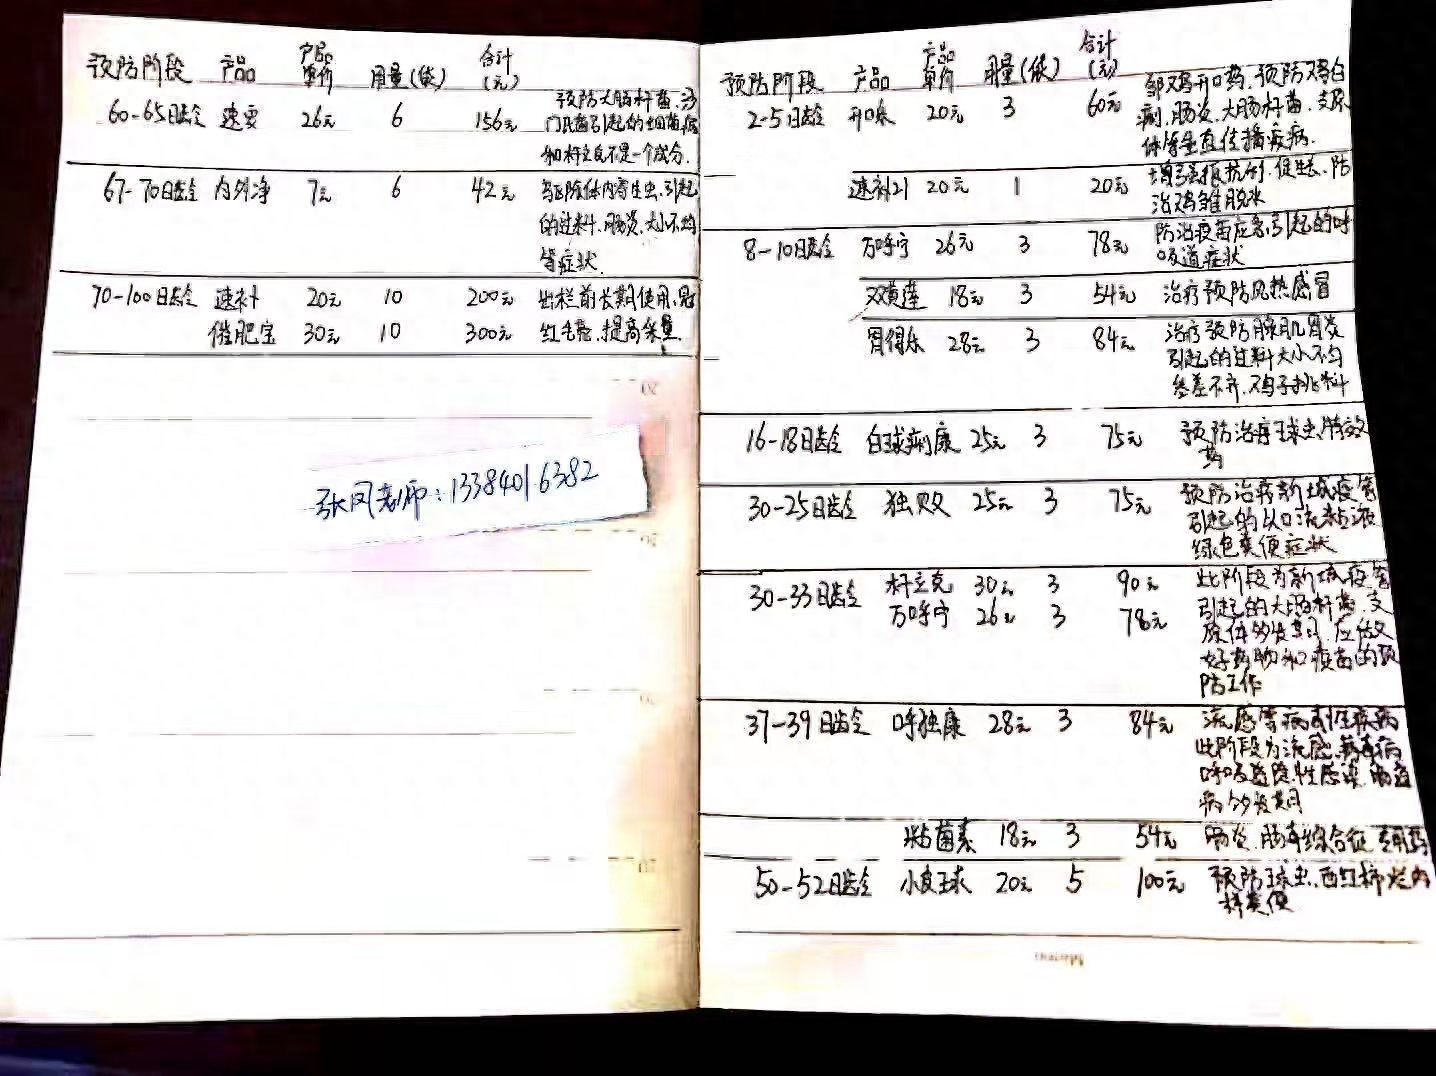 预防阶段 产品 产品单价 用量(袋) 合计(元)
60-65日龄 速安 26元 6 156元 预防大肠杆菌、沙
门氏菌引起的细菌病
和杆立克不是一个成分.
67-70日龄 内外净 7元 6 42元 驱除体内寄生虫、引起
的过料、肠炎、大小不均
等症状.
70-100日龄 速补 20元 10 200元 出栏前长期使用、冠
催肥宝 30元 10 300元 红毛亮、提高采量.
张凤老师:13384016382
预防阶段 产品 产品单价 用量(袋) 合计(元)
2-5日龄 开口乐 20元 3 60元 雏鸡开口药、预防鸡白
痢、肠炎、大肠杆菌、支原
体等垂直传播疾病.
速补21 20元 1 20元 增强抵抗力、促生长、防
治鸡雏脱水
8-10日龄 万呼宁 26元 3 78元 防治疫苗应急引起的呼
吸道症状
双黄莲 18元 3 54元 治疗预防风热感冒
胃得乐 28元 3 84元 治疗预防腺肌胃炎
引起的过料大小不均
参差不齐、鸡子挑料
16-18日龄 白球痢康 25元 3 75元 预防治疗球虫特效
药
30-25日龄 独败 25元 3 75元 预防治疗新城疫等
引起的从口流粘液
绿色粪便症状
30-33日龄 杆立克 30元 3 90元 此阶段为新城疫等
万呼宁 26元 3 78元 引起的大肠杆菌、支
原体多发期、应做
好药物和疫苗的预
防工作
37-39日龄 呼独康 28元 3 84元 流感等病毒性疾病
此阶段为流感、病毒病
呼吸道隐性感染、肠道
病多发期
粘菌素 18元 3 54元 肠炎、肠毒综合征专用药
50-52日龄 小皮球 20元 5 100元 预防球虫、西红柿烂肉
样粪便